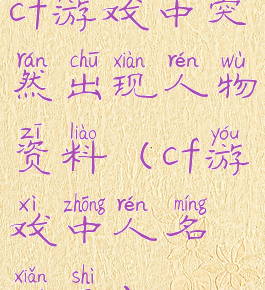 cf游戏中突
rán chū xiàn rén wù
然出现人物
zī liào yóu
资料(cf游
xì zhōng rén míng
戏中人名
xiǎn shì